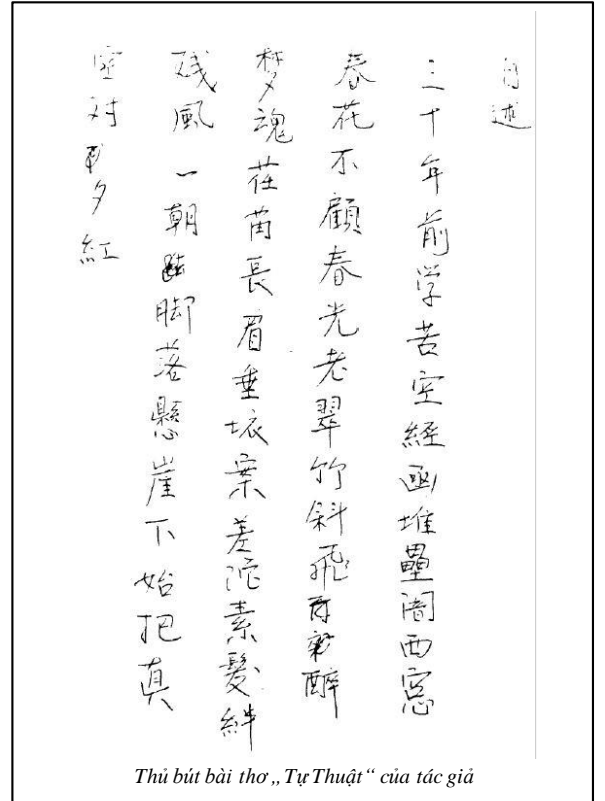 自述
三十年前学苦空經凾堆壘闇西窓
春花不顧春光老翠竹斜飛醉
夢魂荏苒長眉垂壊案差陀素髮絆
残風一朝脚落懸崖下始把真
空対夕紅
Thủ bút bài thơ „Tự Thuật“ của tác giả